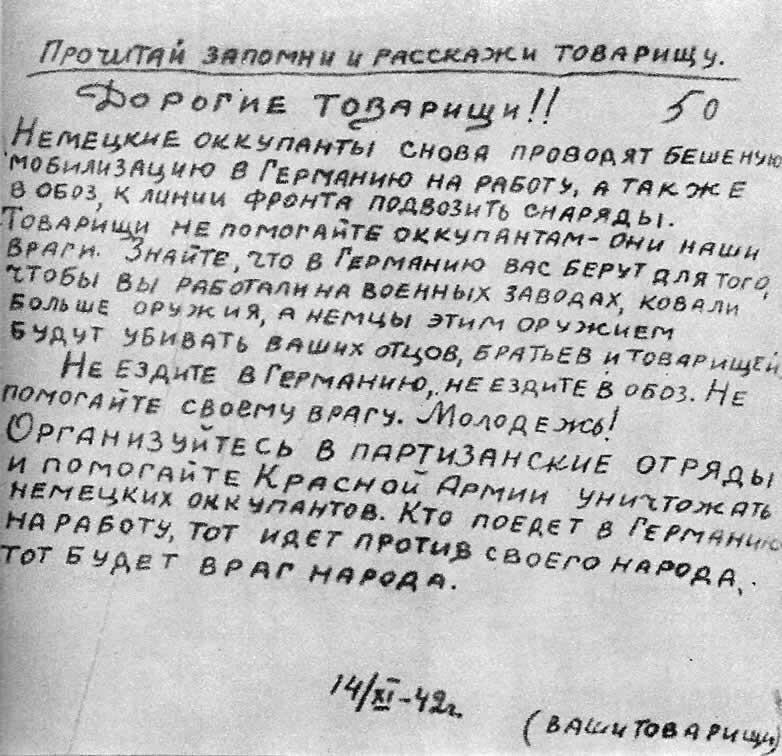 Прочитай запомни и расскажи товарищу.
Дорогие товарищи!! 50
Немецкие оккупанты снова проводят бешеную
мобилизацию в Германию на работу, а также
в обоз, к линии фронта подвозить снаряды.
Товарищи не помогайте оккупантам - они наши
враги. Знайте, что в Германию вас берут для того,
чтобы вы работали на военных заводах, ковали
больше оружия, а немцы этим оружием
будут убивать ваших отцов, братьев и товарищей.
Не ездите в Германию, не ездите в обоз. Не
помогайте своему врагу. Молодежь!
Организуйтесь в партизанские отряды
и помогайте Красной Армии уничтожать
немецких оккупантов. Кто поедет в Германию
на работу, тот идет против своего народа,
тот будет враг народа.
14/XI-42г.
(ваши товарищи